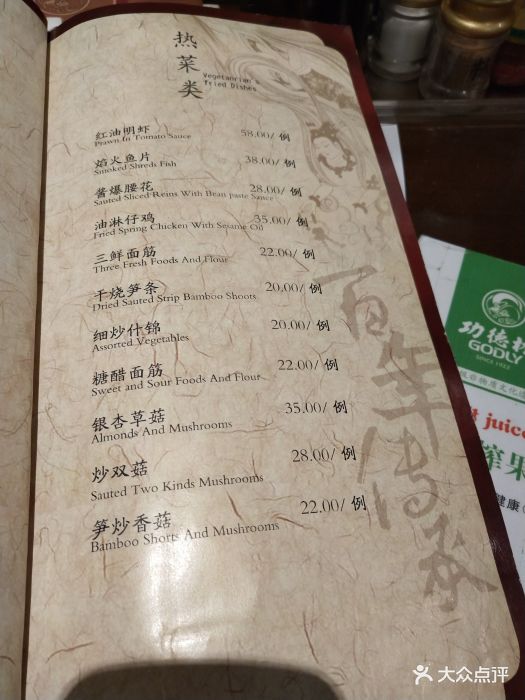 热菜类
Vegetanrian's
Fried Dishes
红油明虾 58.00/ 例
Prawn In Tomato Sauce
焰火鱼片 38.00/ 例
Smoked Shreds Fish
酱爆腰花 28.00/ 例
Sauted Sliced Reins With Bean paste Sauce
油淋仔鸡 35.00/ 例
Fried Spring Chicken With Sesame Oil
三鲜面筋 22.00/ 例
Three Fresh Foods And Flour
干烧笋条 20.00/ 例
Dried Sauted Strip Bamboo Shoots
细炒什锦 20.00/ 例
Assorted Vegetables
糖醋面筋 22.00/ 例
Sweet and Sour Foods And Flour
银杏草菇 35.00/ 例
Almonds And Mushrooms
炒双菇 28.00/ 例
Sauted Two Kinds Mushrooms
笋炒香菇 22.00/ 例
Bamboo Shorts And Mushrooms
百年传承
功德林
GODLY
SINCE 1922
juice
榨果
健康
大众点评